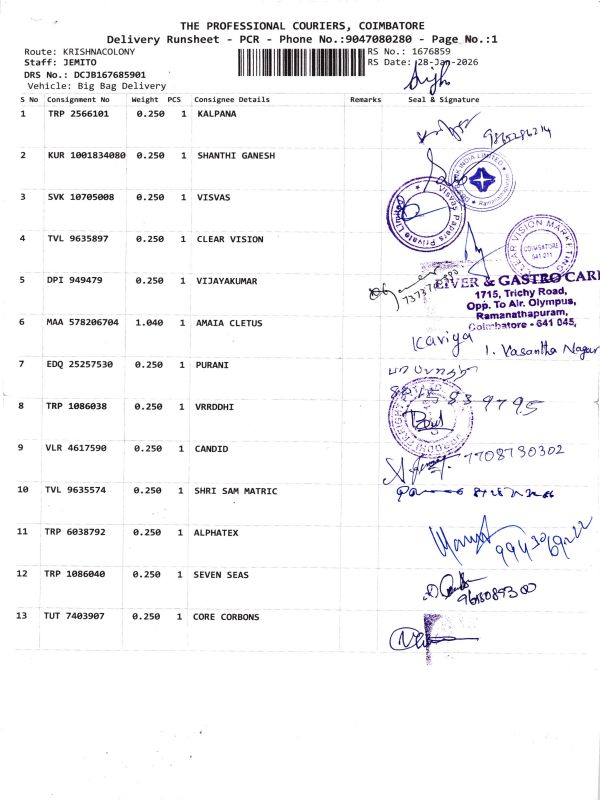 THE PROFESSIONAL COURIERS, COIMBATORE
Delivery Runsheet - PCR - Phone No.:9047080280 - Page No.:1
Route: KRISHNACOLONY
RS No.: 1676859
Staff: JEMITO
RS Date: 28-Jan-2026
DRS No.: DCJB167685901
Vehicle: Big Bag Delivery
S No Consignment No Weight PCS Consignee Details Remarks Seal & Signature
1 TRP 2566101 0.250 1 KALPANA
9865286214
2 KUR 1001834080 0.250 1 SHANTHI GANESH
3 SVK 10705008 0.250 1 VISVAS
Visvas Papers Private Limited
4 TVL 9635897 0.250 1 CLEAR VISION
CLEAR VISION MARKETING
COIMBATORE
641 011
5 DPI 949479 0.250 1 VIJAYAKUMAR
LIVER & GASTRO CARE
1715, Trichy Road,
Opp. To Air. Olympus,
Ramanathapuram,
Coimbatore - 641 045,
6 MAA 578206704 1.040 1 AMAIA CLETUS
Kaviya
1. Vasantha Nagar
7 EDQ 25257530 0.250 1 PURANI
839795
8 TRP 1086038 0.250 1 VRRDDHI
9 VLR 4617590 0.250 1 CANDID
7708730302
10 TVL 9635574 0.250 1 SHRI SAM MATRIC
11 TRP 6038792 0.250 1 ALPHATEX
12 TRP 1086040 0.250 1 SEVEN SEAS
13 TUT 7403907 0.250 1 CORE CORBONS